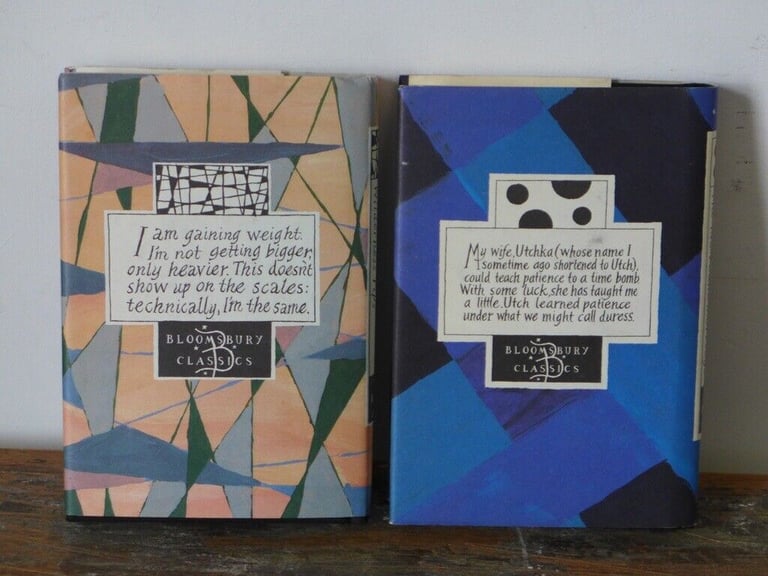 I am gaining weight.
I'm not getting bigger,
only heavier. This doesn't
show up on the scales:
technically, I'm the same.
BLOOMSBURY
CLASSICS
My wife, Utchka (whose name I
sometime ago shortened to Utch),
could teach patience to a time bomb
With some luck, she has taught me
a little. Utch learned patience
under what we might call duress.
BLOOMSBURY
CLASSICS